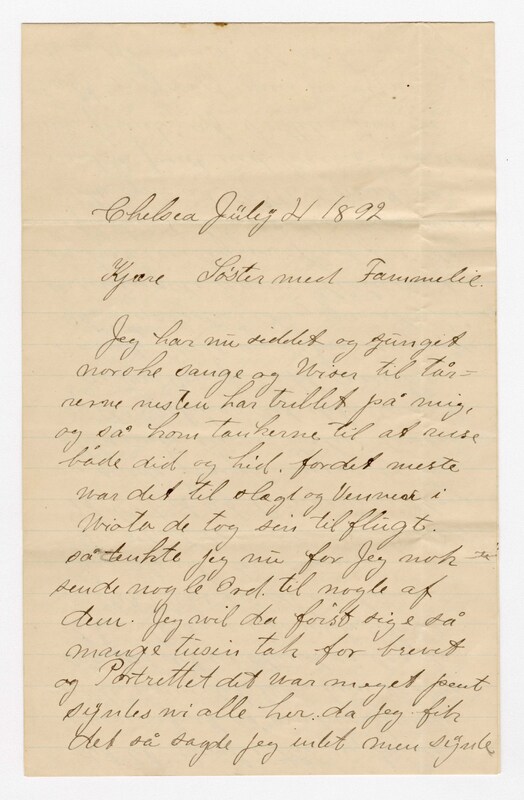 Chelsea Jüly 4 1892
Kjære Søster med Fammelie.
Jeg har nu siddet og sjunget
norske sange og Wiser til tår-
rerne nesten har trillet på mig,
og så kom tankerne til at reise
både did og hid. fordet meste
war det til slægt og Venner i
Wiota de tog sin tilflugt.
så tenkte jeg nu får Jeg nok
sende nogle Ord. til nogle af
dem. Jeg wil da først sige så
mange tusin tak for brevet
og Portrettet det war meget pent
syntes wi alle her. da jeg fik
det så sagde jeg intet men syntes